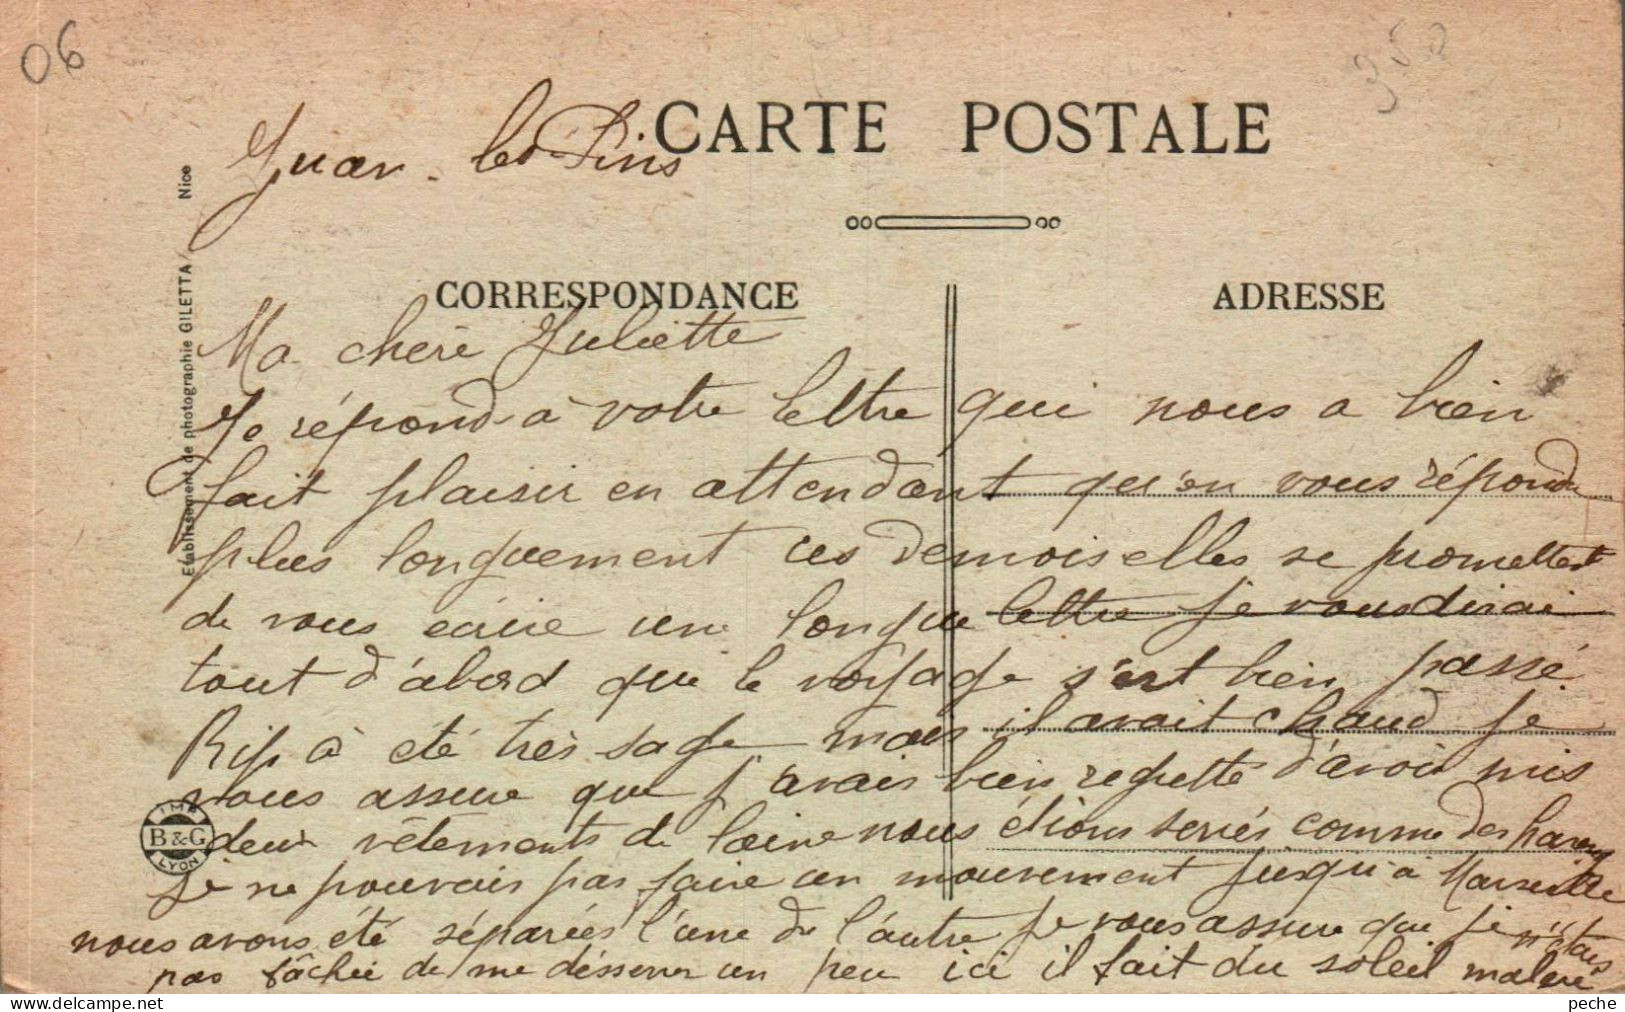 06
350
Juan-les-Pins
CARTE POSTALE
CORRESPONDANCE
ADRESSE
Etablissement de photographie GILETTA / Nice
Ma chère Juliette
Je répond à votre lettre qui nous a bien
fait plaisir en attendant qu'on vous réponde
plus longuement ces demoiselles se promettent
de vous écrire une longue lettre je vous dirai
tout d'abord que le voyage s'est bien passé
Rip à été très sage mais il avait chaud je
vous assure que j'avais bien regretté d'avoir mis
deux vêtements de laine nous étions serrés comme des harengs
je ne pouvais pas faire un mouvement jusqu'à Marseille
nous avons été séparées l'une de l'autre je vous assure que je n'étais
pas fâchée de me désserrer un peu ici il fait du soleil malgré
IMP
B & G
LYON
peche